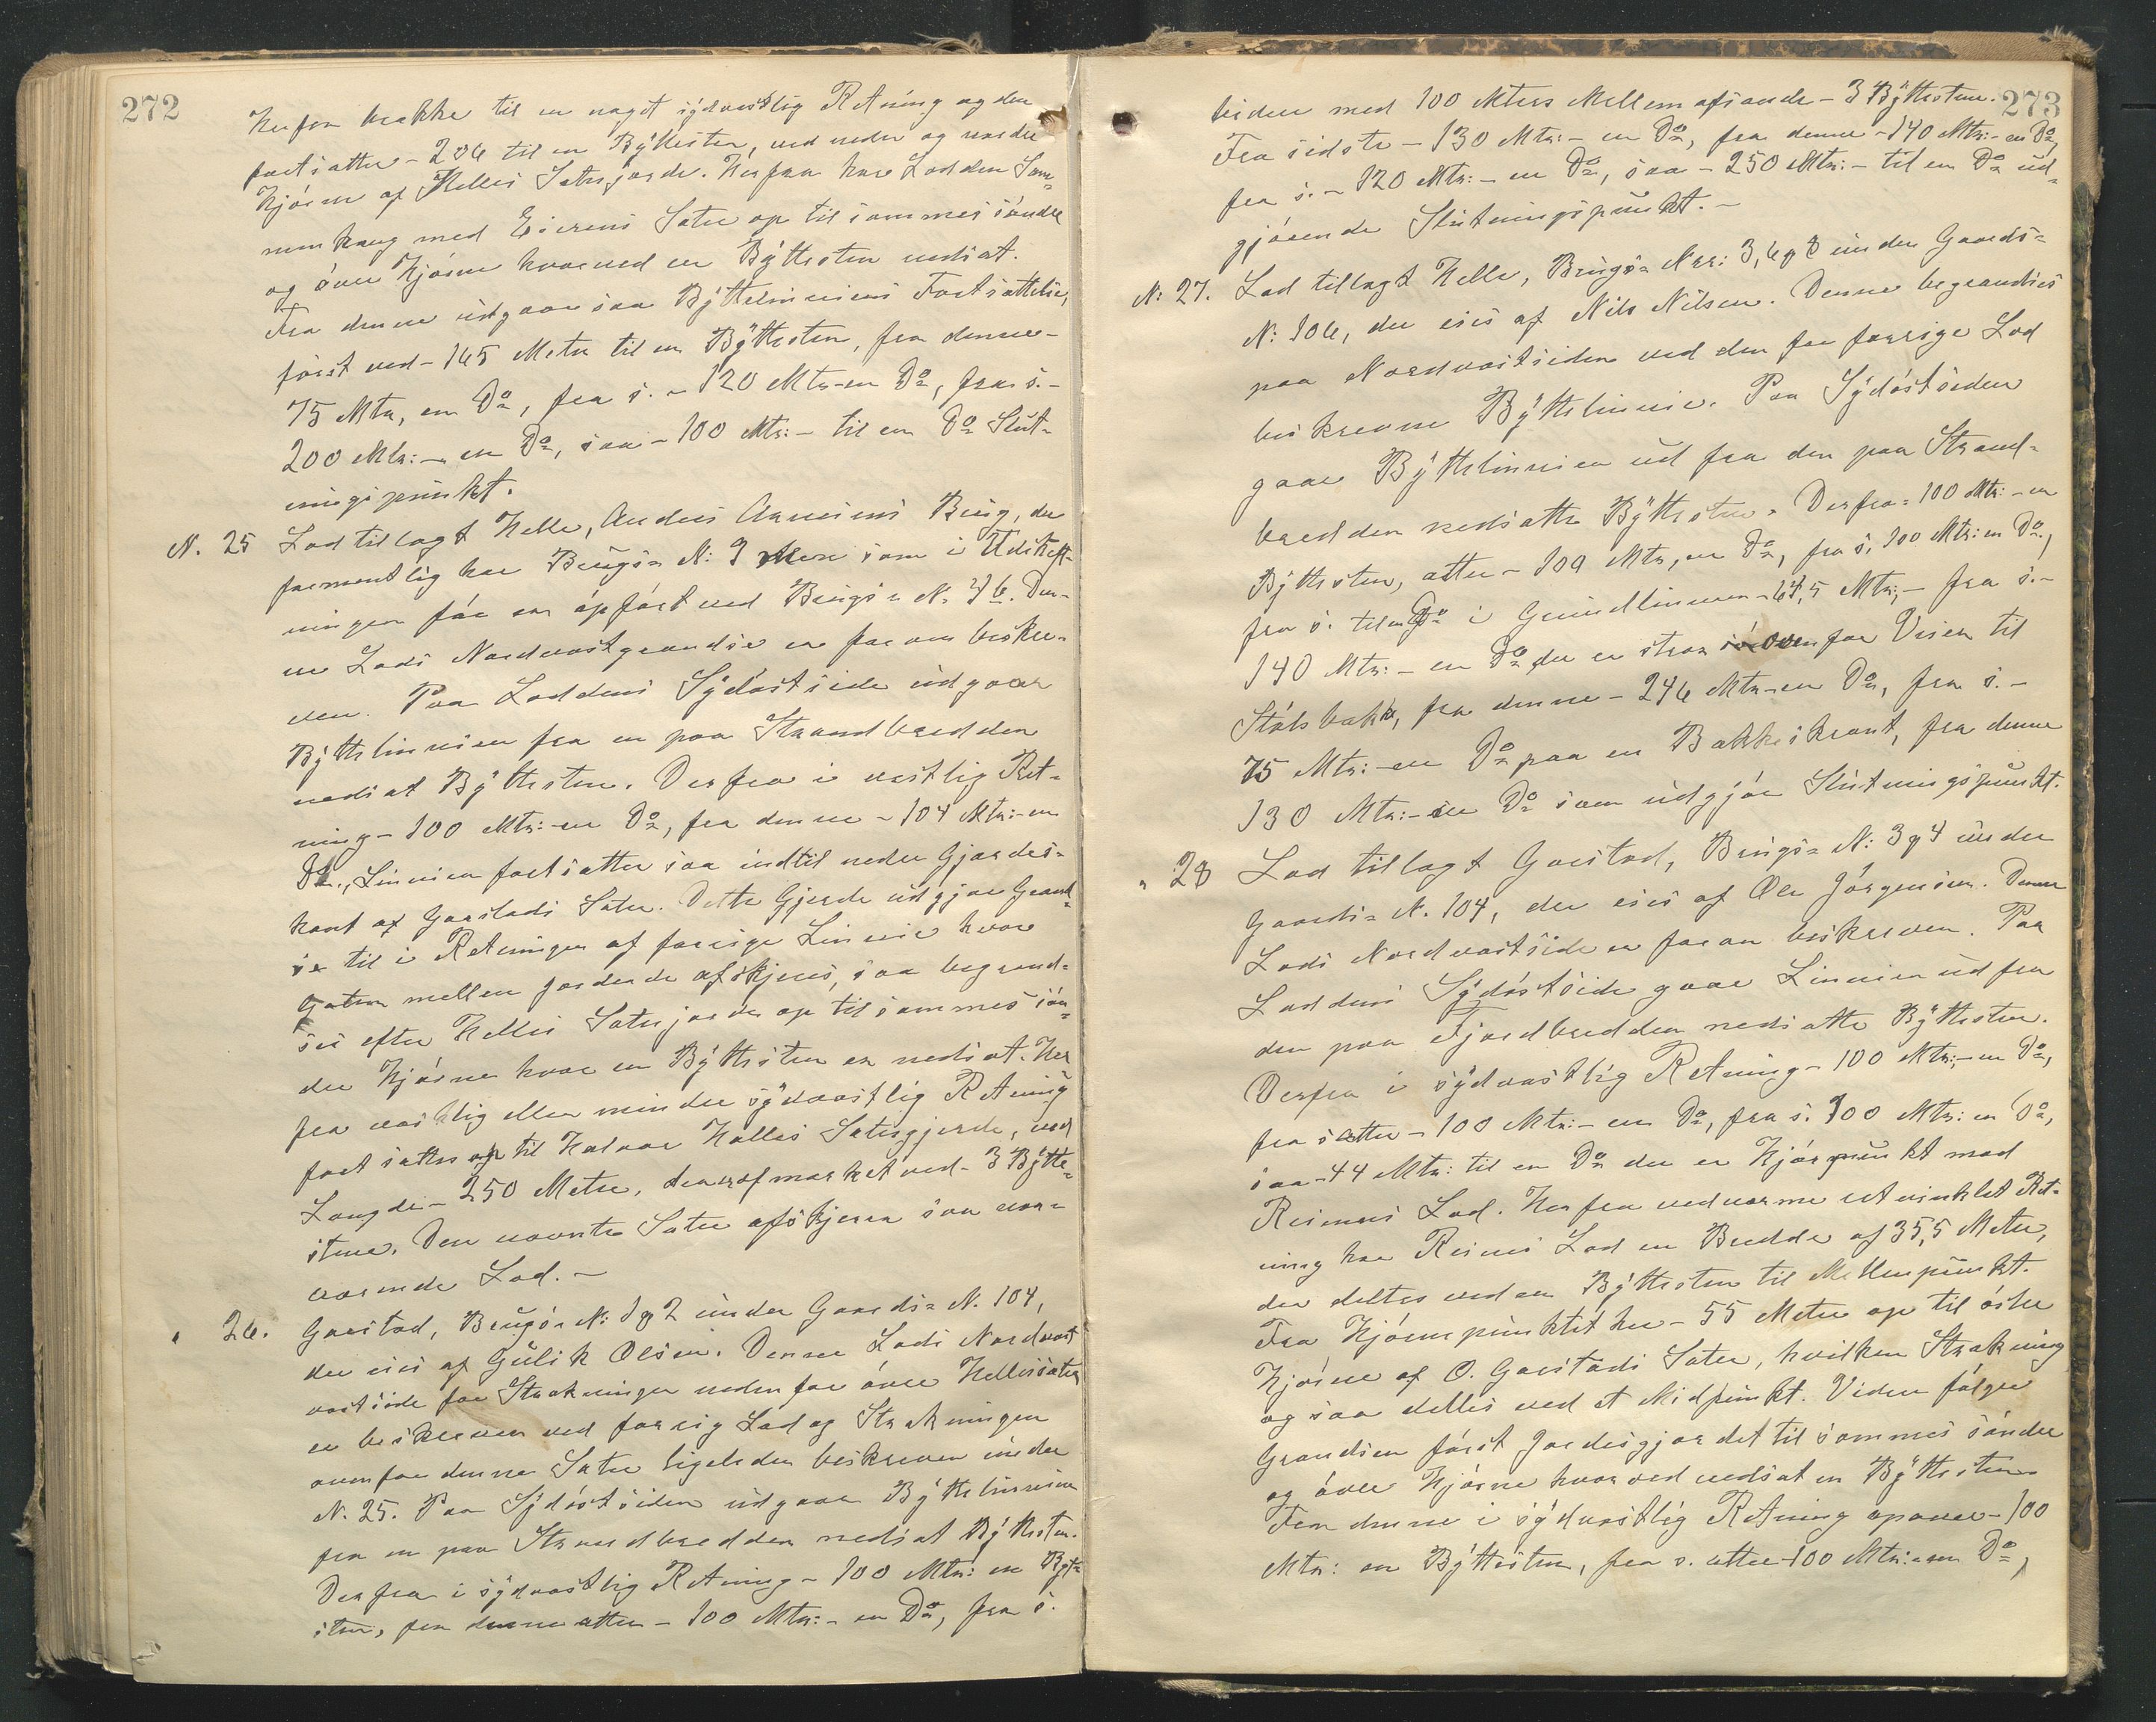 272
Herfra brække til en noget sydvestlig Retning og den
fortsætter - 206 til en Bÿttesten, ved nedre og nordre
Hjørne af Helles Sæterjorde. Herfra har Lodden Sam¬
menhæng med Eierens Sæter op til sammes søndre
og øvre Hjørne hvorved en Bÿttesten nedsat.
Fra denne udgaar saa Bÿttelinniens Fortsættelse,
først ved - 165 Meter til en Bÿttesten, fra denne -
75 Mtr, en Do, fra s. - 120 Mtr - en Do, fra s. -
200 Mtr: - en Do, saa - 100 Mtr: - til en Do Slut-
ningspunkt.
N. 25 Lod tillagt Helle, Anders Arnesens Brug, der
formentlig har Brugs= N: 9 men som i Udskift-
ningen før er opført ved Brugs= N. 76. Den-
ne Lods Nordvestgrændse er foran beskre-
ven. Paa Loddens Sÿdøstside udgaar
Bÿttelinnien fra en paa Strandbredden
nedsat Bÿttesten. Derfra i vestlig Ret-
ning - 100 Mtr: - en Do, fra denne - 104 Mtr: - en
Do., Linnien fortsætter saa indtil nedre Gjærdes-
kant af Gaarstads Sæter. Dette Gjerde udgjør Grænd¬
se til i Retningen af forrige Linnie hvor
Gaten mellem jorderde afskjæres, saa begrænd-
ses efter Helles Sæterjorde op til sammes søn¬
dre Hjørne hvor en Bÿttesten er nedsat. Her
fra vestlig eller mindre sÿdvestlig Retning
fortsættes op til Halvor Helles Sætergjerde, ved
Længde - 250 Meter, der er afmærket ved - 3 Bÿtte-
stene. Den nævnte Sæter afskjerer saa nær-
værende Lod. -
" 26. Gaarstad, Brugs= N: 1 og 2 under Gaards= N. 104,
der eies af Gulik Olsen. Denne Lods Nordvest
vestside for Strækningen nedenfor øvre Hellesæter
er beskreven ved forrig Lod og Strækningen
ovenfor denne Sæter ligeleden beskreven under
N. 25. Paa Sÿdøstsiden udgaar Bÿttelinnien
fra en paa Strandbredden nedsat Bÿttesten.
Derfra i sÿdvestlig Retning - 100 Mtr: en Bÿt-
sten, fra denne atter - 100 Mtr: - en Do, fra s.
273
viden med 100 Mters Mellemafstande - 3 Bÿttestene.
Fra sidste - 130 Mtr: - en Do, fra denne - 140 Mtr: - en Do,
fra s. - 120 Mtr: - en Do, saa - 250 Mtr: - til en Do ud-
gjørende Slutningspunkt. -
N: 27. Lod tillagt Helle, Brugs= Nrr: 3, 6 og 8 under Gaards=
N: 106, der eies af Nils Nilsen. Denne begrændses
paa Nordvestsiden ved den for forrige Lod
beskrevne Bÿttelinnie. Paa Sÿdøstsiden
gaar Bÿttelinnien ud fra den paa Strand-
bredden nedsatte Bÿttesten. Derfra = 100 Mtr: - en
Bÿttesten, atter - 100 Mtr, en Do, fra s. 100 Mtr: en Do.,
fra s. til en Do i Grundlinnien - 64,5 Mtr; - fra s. -
140 Mtr: - en Do der er strax ovenfor Veien til
Stølsbakk, fra denne - 246 Mtr - en Do, fra s. -
75 Mtr: - en Do paa en Bakkeskrænt, fra denne
130 Mtr: - en Do som udgjør Slutningspunkt.
" 28 Lod tillagt Gaarstad, Brugs= N: 3 og 4 under
Gaards= N. 104, der eies af Ole Jørgensen. Denne
Lods Nordvestside er foran beskreven. Paa
Loddens Sÿdøstside gaar Linnien ud fra
den paa Fjordbredden nedsatte Bÿttesten.
Derfra i sÿdvestlig Retning - 100 Mtr; - en Do,
fra s atter - 100 Mtr: - en Do, fra s. 100 Mtr: en Do,
saa - 44 Mtr: til en Do der er Hjørpunkt med
Reimers Lod. Herfra ved nærme retvinklet Ret-
ning har Reimes Lod en Bredde af 35,5 Meter,
der deltes ved en Bÿttesten til Mellempunkt.
Fra Hjørnepunktet her - 55 Meter op til østre
Hjørne af O. Gaarstads Sæter, hvilken Strækning
ogsaa delles ved et Midpunkt. Viden følger
Grændsen først Jordesgjærdet til sammes søndre
og øvre Hjørne hvorved nedsat en Bÿttesten
Fra denne i sÿdvestlig Retning opover - 100
Mtr: en Bÿttesten, fra s. atter - 100 Mtr: - en Do,